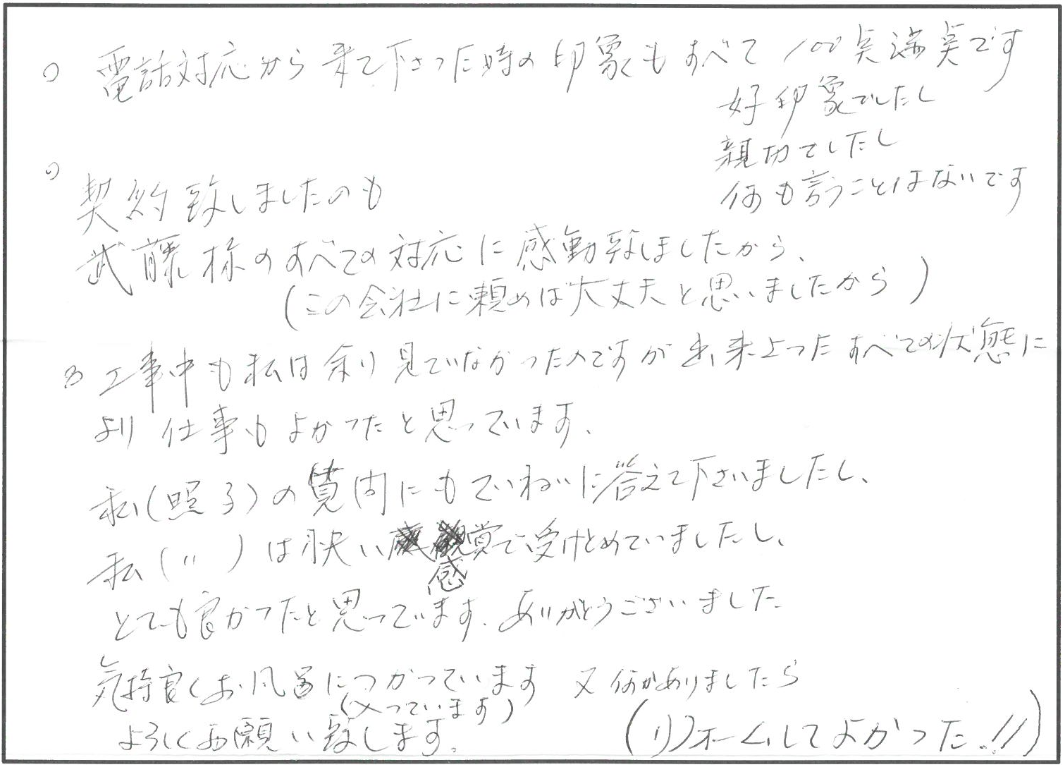 ○ 電話対応から来て下さった時の印象もすべて100点満点です
好印象でしたし
親切でしたし
何も言うことはないです
○ 契約致しましたのも
武藤様のすべての対応に感動致しましたから、
(この会社に頼めば大丈夫と思いましたから)
工事中も私は余り見ていなかったんですが出来上ったすべての状態に
より仕事もよかったと思っています、
私(照子)の質問にもていねいに答えて下さいましたし、
私(〃)は快い感覚で受けとめていましたし、
とても良かったと思っています、ありがとうございました
気持良くお風呂につかっています 又何かありましたら
(入っています)
よろしくお願い致します。 (リフォームしてよかった!!)